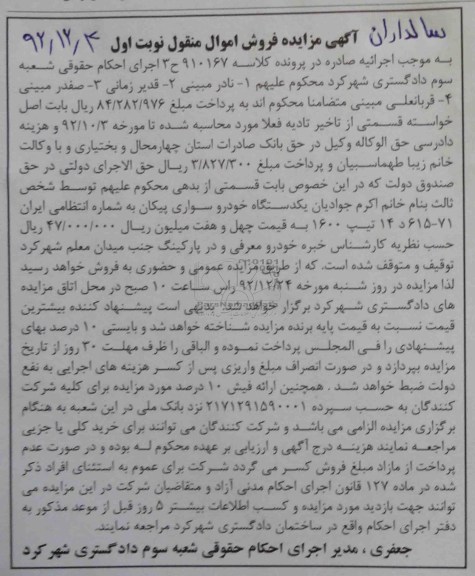 سالداران ۹۲,۱۲,۳
آگهی مزایده فروش اموال منقول نوبت اول
به موجب اجرائیه صادره در پرونده کلاسه ۹۱۰۱۶۷ ح۳ اجرای احکام حقوقی شعبه
سوم دادگستری شهرکرد محکوم علیهم ۱- نادر مبینی ۲- قدیر زمانی ۳- صفدر مبینی
۴- قربانعلی مبینی متضامنا محکوم اند به پرداخت مبلغ ۸۴/۲۸۲/۹۷۶ ریال بابت اصل
خواسته قسمتی از تاخیر تادیه فعلا مورد محاسبه شده تا مورخه ۹۲/۱۰/۳ و هزینه
دادرسی حق الوکاله وکیل در حق بانک صادرات استان چهارمحال و بختیاری و با وکالت
خانم زیبا طهماسبیان و پرداخت مبلغ ۳/۸۲۷/۳۰۰ ریال حق الاجرای دولتی در حق
صندوق دولت که در این خصوص بابت قسمتی از بدهی محکوم علیهم توسط شخص
ثالث بنام خانم اکرم جوادیان یکدستگاه خودرو سواری پیکان به شماره انتظامی ایران
۷۱-۶۱۵ د ۱۴ تیپ ۱۶۰۰ به قیمت چهل و هفت میلیون ریال ۴۷/۰۰۰/۰۰۰ ریال
حسب نظریه کارشناس خبره خودرو معرفی و در پارکینگ جنب میدان معلم شهرکرد
توقیف و متوقف شده است. که از طریق مزایده عمومی و حضوری به فروش خواهد رسید
لذا مزایده در روز شنبه مورخه ۹۲/۱۲/۲۴ راس ساعت ۱۰ صبح در محل اتاق مزایده
های دادگستری شهرکرد برگزار خواهد شد. بدیهی است پیشنهاد کننده بیشترین
قیمت نسبت به قیمت پایه برنده مزایده شناخته خواهد شد و بایستی ۱۰ درصد بهای
پیشنهادی را فی المجلس پرداخت نموده و الباقی را ظرف مهلت ۳۰ روز از تاریخ
مزایده بپردازد و در صورت انصراف مبلغ واریزی پس از کسر هزینه های اجرایی به نفع
دولت ضبط خواهد شد . همچنین ارائه فیش ۱۰ درصد مورد مزایده برای کلیه شرکت
کنندگان به حسب سپرده ۲۱۷۱۲۹۱۵۹۰۰۰۱ نزد بانک ملی در این شعبه به هنگام
برگزاری مزایده الزامی می باشد و شرکت کنندگان می توانند برای خرید کلی یا جزیی
مراجعه نمایند هزینه درج آگهی و ارزیابی بر عهده محکوم له بوده و در صورت عدم
پرداخت از مازاد مبلغ فروش کسر می گردد شرکت برای عموم به استثنای افراد ذکر
شده در ماده ۱۲۷ قانون اجرای احکام مدنی آزاد و متقاضیان شرکت در این مزایده می
توانند جهت بازدید مورد مزایده و کسب اطلاعات بیشتر ۵ روز قبل از موعد مذکور به
دفتر اجرای احکام واقع در ساختمان دادگستری شهرکرد مراجعه نمایند.
جعفری ، مدیر اجرای احکام حقوقی شعبه سوم دادگستری شهر کرد